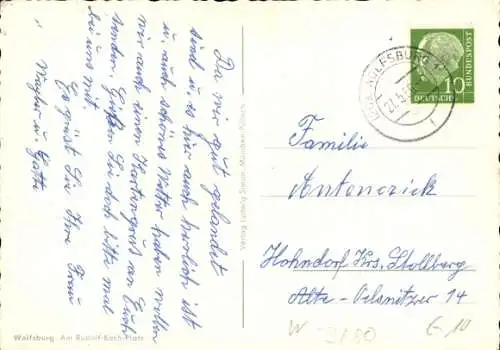 Da wir gut gelandet
sind u. es hier auch herrlich ist
u. auch schönes Wetter haben wollen
wir auch einen Kartengruß an Euch
senden. Grüßen Sie doch bitte mal
bei uns mit.
Es grüßt Sie Ihre Frau
u. Gatte
Wolfsburg Am Rudolf-Koch-Platz
WOLFSBURG
10
DEUTSCHE
BUNDESPOST
Familie
Hohndorf Krs. Stollberg
Alte-Oelsnitzer 14
W 3180
€-10